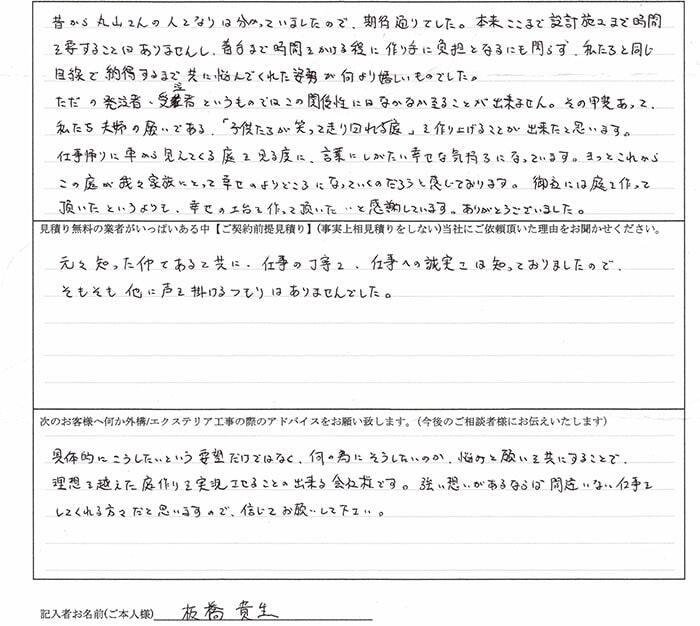 昔から丸山さんの人となりは分かっていましたので、期待通りでした。本来ここまで設計施工まで時間
を要することはありませんし、着工まで時間をかける程に作り手に負担となるにも関らず、私たちと同じ
目線で納得するまで共に悩んでくれた姿勢が何より嬉しいものでした。
ただの発注者・受注者というものではこの関係性にはなかなか至ることが出来ません。その甲斐あって、
私たち夫婦の願いである、「子供たちが笑って走り回れる庭」を作り上げることが出来たと思います。
仕事帰りに車から見えてくる庭を見る度に、言葉にしがたい幸せな気持ちになっています。きっとこれから
この庭が我々家族にとって幸せのよりどころになっていくのだろうと感じております。御社には庭を作って
頂いたというよりも、幸せの土台を作って頂いたいと感謝しています。ありがとうございました。
見積り無料の業者がいっぱいある中【ご契約前提見積り】(事実上相見積りをしない)当社にご依頼頂いた理由をお聞かせください。
元々知った仲であると共に、仕事の丁寧さ、仕事への誠実さは知っておりましたので、
そもそも他に声を掛けるつもりはありませんでした。
次のお客様へ何か外構/エクステリア工事の際のアドバイスをお願い致します。(今後のご相談者様にお伝えいたします)
具体的にこうしたいという要望だけではなく、何の為にそうしたいのか、悩みと願いを共にすることで、
理想を越えた庭作りを実現させることの出来る会社様です。強い想いがあるならば間違いない仕事を
してくれる方々だと思いますので、信じてお願いして下さい。
記入者お名前(ご本人様) 板橋貴生